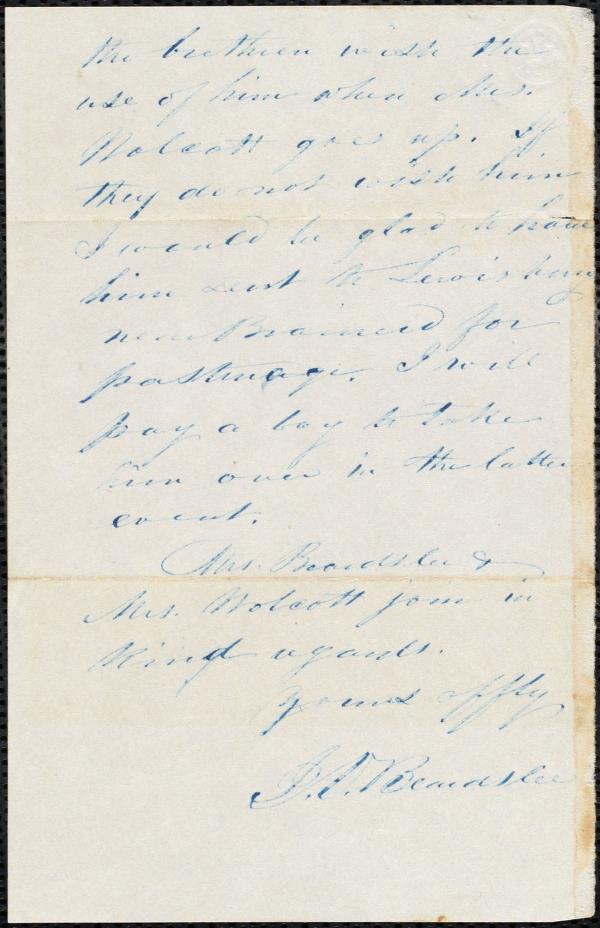 the brethren wish the
use of him when Mrs.
Wolcott goes up. If
they do not wish him
I would be glad to have
him sent to
near Brainerd for
pasturage. I will
pay a boy to take
him over in the latter
event.
Mrs. Beardslee &
Mrs. Wolcott join in
kind regards.
Yours affly
J. S. Beardslee